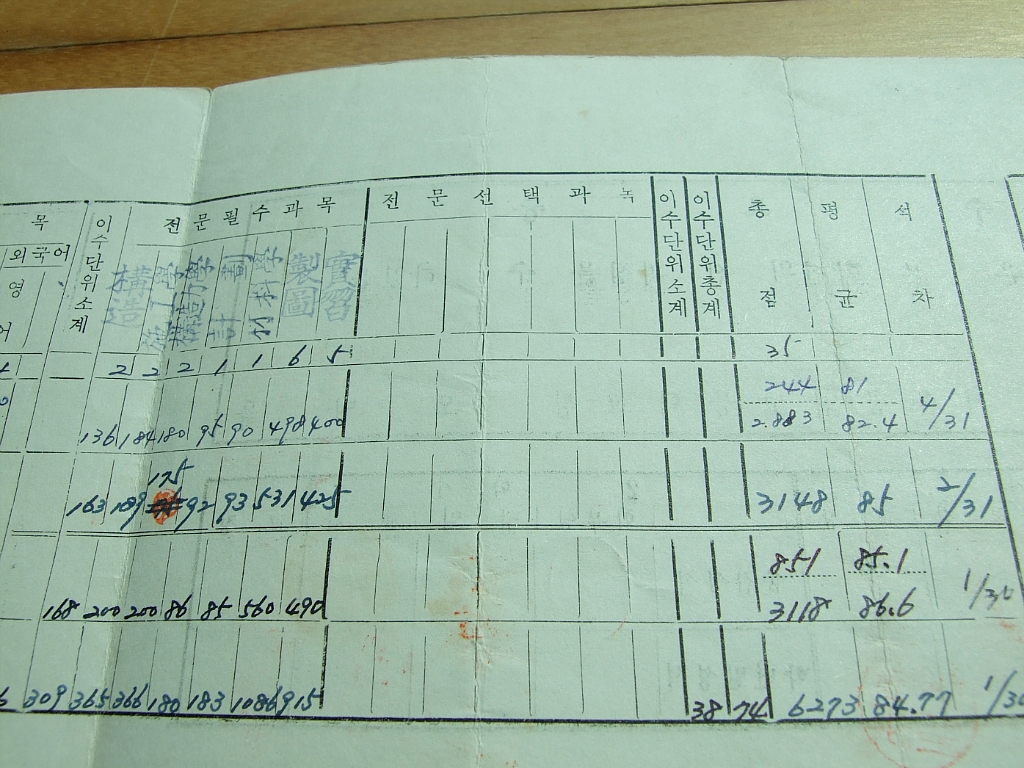 목 이수단위소계 전문필수과목 전문선택과목 이수단위소계 이수단위총계 총점 평균 석차
외국어
영어 構造 施工學 構造力學 計劃 材料學 製圖 實習
2 2 2 1 1 6 5 35
244 81
136 184 180 95 90 498 400 2.883 82.4 4/31
175
163 189 92 93 531 425 3148 85 2/31
851 85.1
168 200 200 86 85 560 490 3118 86.6
309 365 366 180 183 1086 915 38 74 6273 84.77